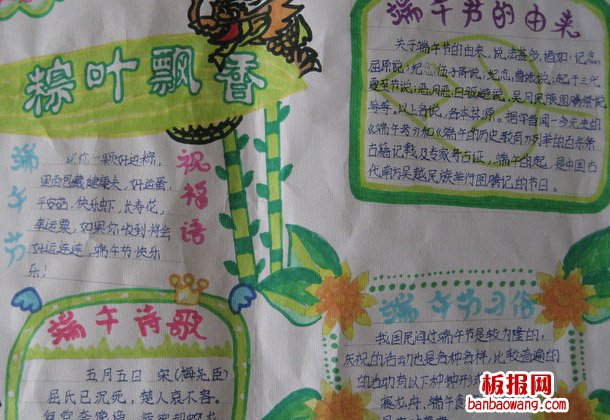 粽叶飘香
端午节
祝福语
送你一颗好运粽，
里面包藏健康长，好运蛋，
平安菇，快乐虾，长寿花，
幸运栗，如果你收到将会
好运连连，端午节快乐
乐！
端午诗歌
五月五日 宋(梅尧臣)
屈氏已沉死，楚人哀不容。
端午节的由来
关于端午节的由来，说法甚多，诸如：纪念
屈原说；纪念伍子胥说；纪念曹娥说；起于三代
夏至节说；恶月恶日驱避说，吴月民族图腾祭说
等等。以上各说，各本其源。据学者闻一多先生的
《端午考》和《端午的历史教育》列举的百余条
古籍记载及专家考古证，端午的起，是中国古
代南方吴越民族举行图腾记的节日。
端午节习俗
我国民间过端午节是较为隆的，
庆祝的活动也是各种各样，比较普遍的
的活动有以下种种形式
赛龙舟，端午
板报网
banbaowang.com